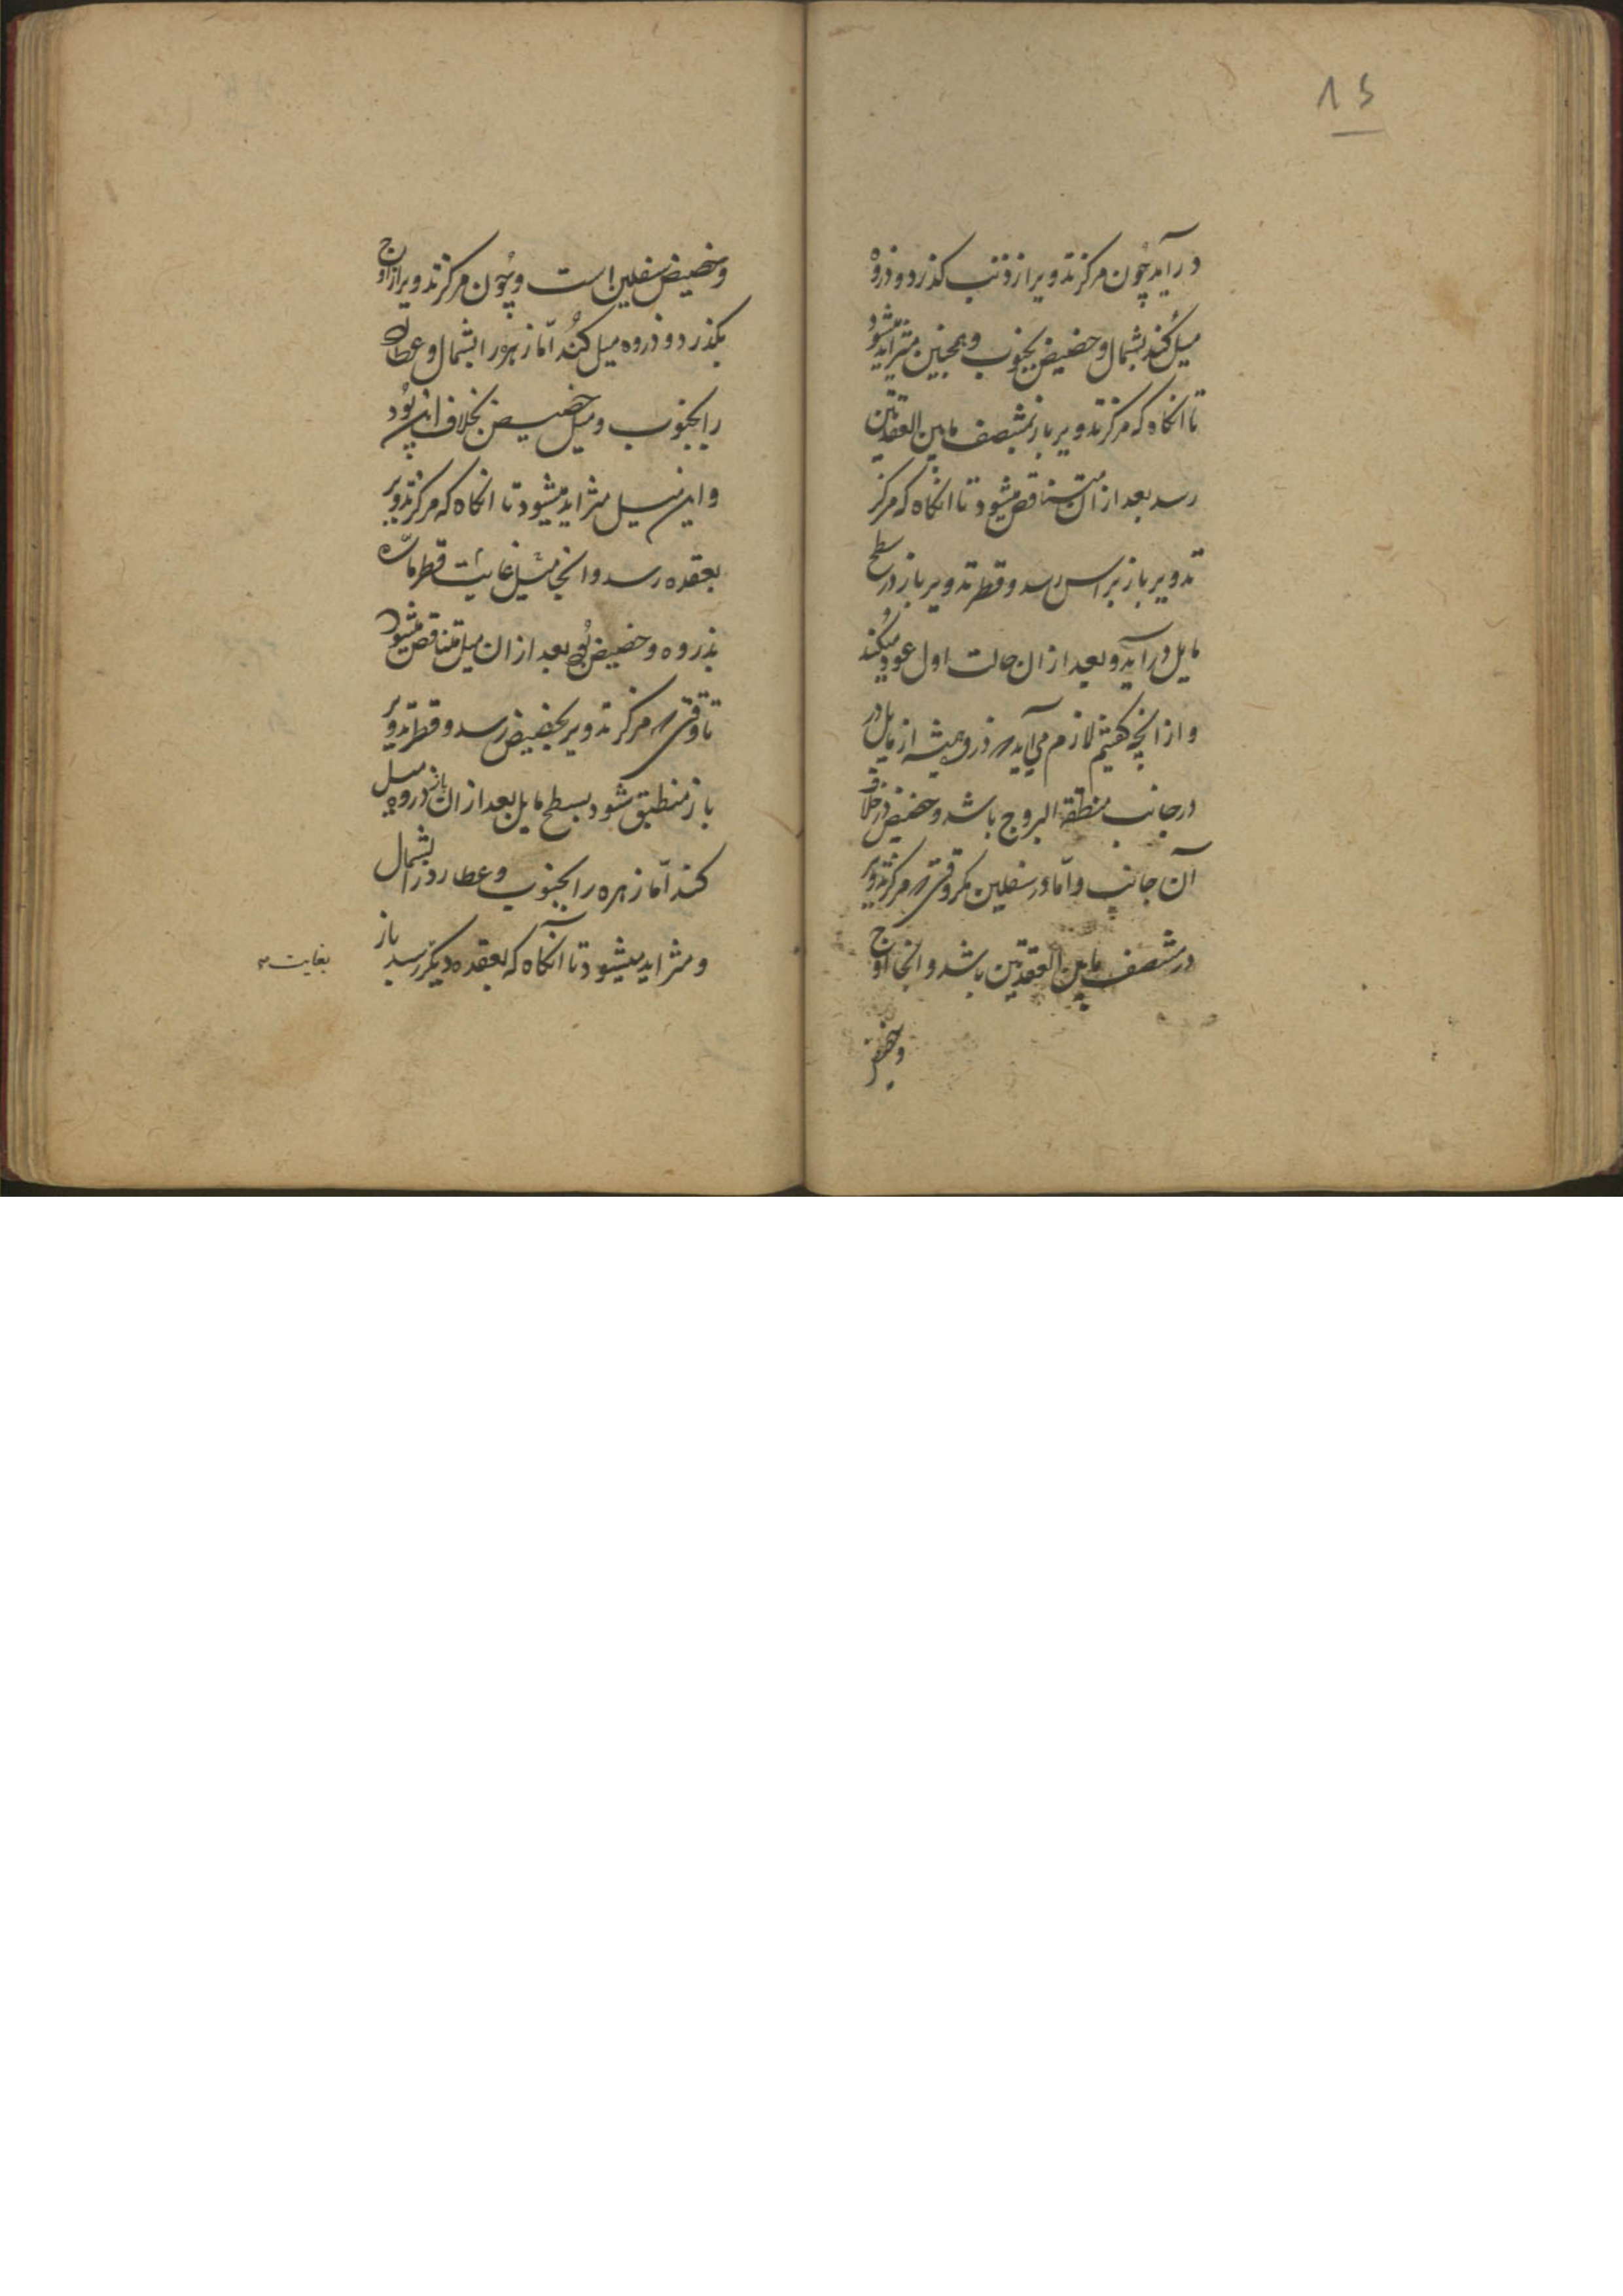 15
درآید چون مرکز تدویر از ذنب گذرد و ذروه
میل کند بشمال و حضیض بجنوب و همچنین متزاید میشود
تا انکاه که مرکز تدویر باز بمنتصف مابین العقدتین
رسد بعد از ان متناقص میشود تا انکاه که مرکز
تدویر باز براس رسد و قطر تدویر باز در سطح
مایل درآید و بعد از ان حالت اول عود میکند
و از انچه کفتیم لازم می آید که ذروه همیشه از مایل در
در جانب منطقة البروج باشد و حضیض در خلاف
آن جانب و اما در سفلیین مکر وقتی که مرکز تدویر
در منتصف مابین العقدتین باشد و انجا اوج
و حضیض
و حضیض سفلیین است و چون مرکز تدویر از اوج
بکذرد و ذروه میل کند اما زهره را بشمال و عطارد
را بجنوب و میل حضیض بخلاف این بود
و این میل متزاید میشود تا انکاه که مرکز تدویر
بعقده رسد و انجا میل غایت قطر ماره
بذروه و حضیض بود بعد از ان میل متناقص میشود
تا وقتی که مرکز تدویر بحضیض رسد و قطر تدویر
باز منطبق شود بسطح مایل بعد از ان باز ذروه میل
کند اما زهره را بجنوب و عطارد را بشمال
و متزاید میشود تا آنکاه که بعقده دیکر رسد باز
بغایت